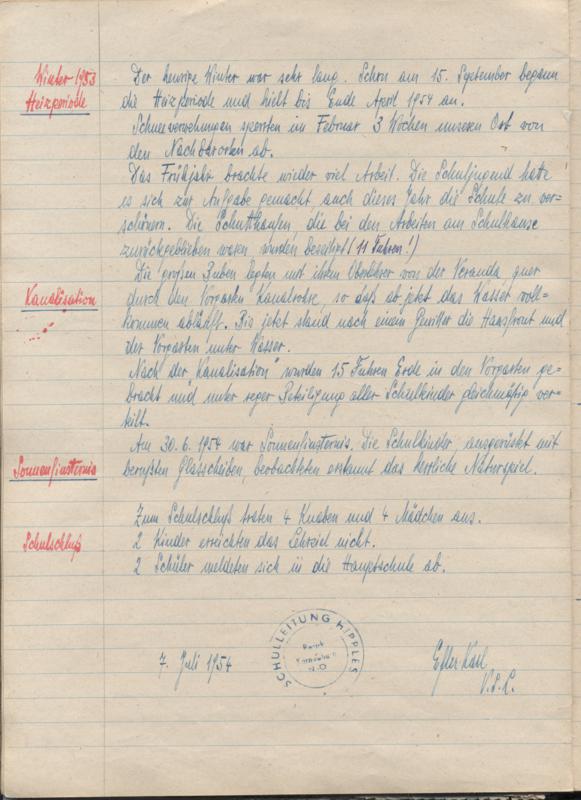 Winter 1953
Heizperiode
Der heurige Winter war sehr lang. Schon am 15. September begann
die Heizperiode und hielt bis Ende April 1954 an.
Schneeverwehungen sperrten im Februar 3 Wochen unseren Ort von
den Nachbarorten ab.
Das Frühjahr brachte wieder viel Arbeit. Die Schuljugend hatte
es sich zur Aufgabe gemacht, auch dieses Jahr die Schule zu ver=
schönern. Die Schutthaufen, die bei den Arbeiten am Schulhause
zurückgeblieben waren, wurden beseitigt (11 Fuhren!)
Kanalisation
Die großen Buben legten mit ihrem Oberlehrer von der Veranda quer
durch den Vorgarten Kanalrohre, so daß ab jetzt das Wasser voll=
kommen abläuft. Bis jetzt stand nach einem Gewitter die Hausfront und
der Vorgarten unter Wasser.
Nach der Kanalisation" wurden 15 Fuhren Erde in den Vorgarten ge=
bracht und unter reger Beteiligung aller Schulkinder gleichmäßig ver=
teilt.
Sonnenfinsternis
Am 30. 6. 1954 war Sonnenfinsternis. Die Schulkinder, ausgerüstet mit
berußten Glasscheiben, beobachteten erstaunt das herrliche Naturspiel.
Schulschluß
Zum Schulschluß traten 4 Knaben und 4 Mädchen aus.
2 Kinder erreichten das Lehrziel nicht.
2 Schüler meldeten sich in die Hauptschule ab.
7. Juli 1954
SCHULLEITUNG HIPPLES
Bezirk
Korneuburg
N.Ö.
Karl